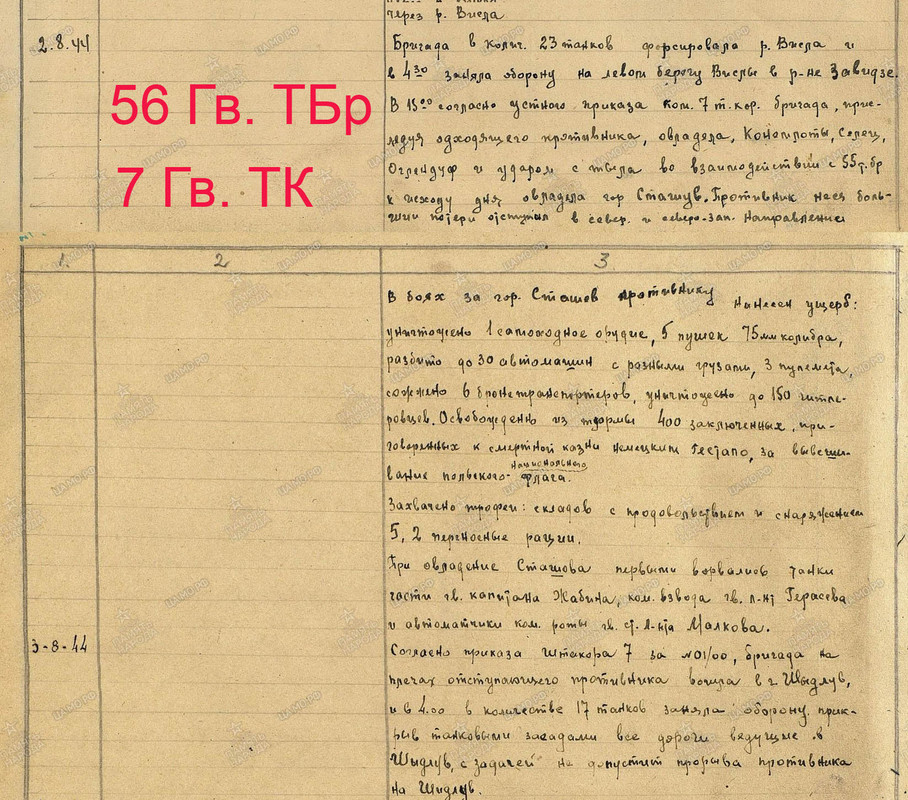 через р. Висла
2.8.44
Бригада в колич. 23 танков форсировала р. Висла и
в 4³⁰ заняла оборону на левом берегу Вислы в р-не Завидзе.
56 Гв. ТБр
В 15⁰⁰ согласно устного приказа ком. 7 т.кор. бригада, прис-
ледуя отходящего противника, овладела, Конемлоты, Селец,
7 Гв. ТК
Оглендуф и ударом с тыла во взаимодействии с 55 т.бр
к исходу дня овладела гор Сташув. Противник неся боль-
шии потери отступил в север. и северо-зап. направлении
1. 2 3
В боях за гор. Сташов противнику нанесен ущерб:
уничтожено 1 самоходное орудие, 5 пушек 75 мм калибра,
разбито до 30 автомашин с разными грузами, 3 пулемета,
сожжено 6 бронетранспортеров, уничтожено до 150 гитле-
ровцев. Освобождены из тюрмы 400 заключенных, при-
говоренных к смертной казни немецким Гестапо, за вывеши-
национального
вание польского флага.
Захвачено трофеи: складов с продовольствием и снаряжением
5, 2 переносные рации.
При овладение Сташова первыми ворвались танки
части гв. капитана Жабина, ком. взвода гв. л-нт Герасева
и автоматчики ком. роты гв. ст. л-нта Малкова.
3-8-44
Согласно приказа штакора 7 за №01/00, бригада на
плечах отступающего противника вошла в г. Шыдлув,
и в 4.00 в количестве 17 танков заняла оборону, прик-
рыв танковыми засадами все дороги ведущие в
Шыдлув, с задачей не допустит прорыва противника
на Шидлув.